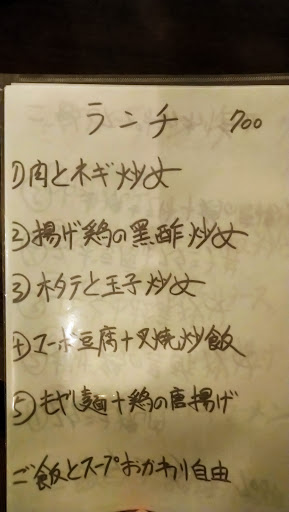 ランチ 700
1)肉とネギ炒め
2)揚げ鶏の黒酢炒め
3)ホタテと玉子炒め
4)マーボ豆腐+叉焼炒飯
5)もやし麺+鶏の唐揚げ
ご飯とスープおかわり自由